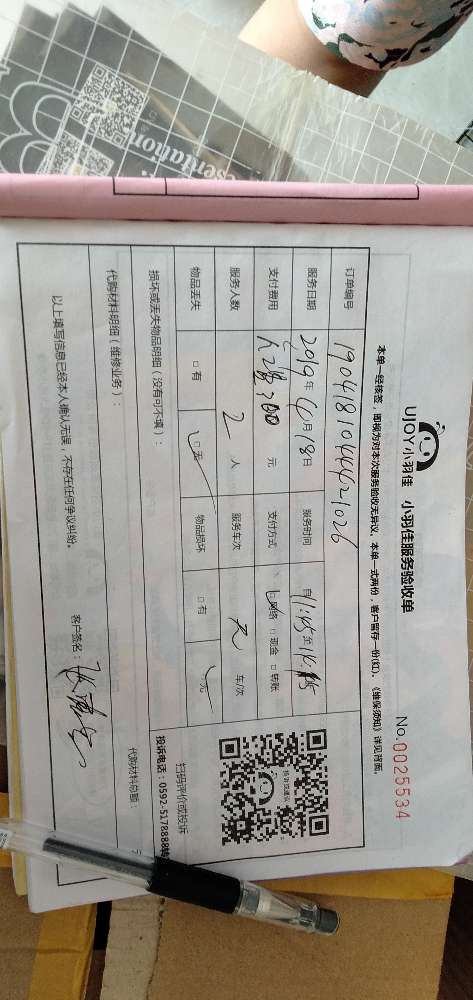 UJOY小羽佳 小羽佳服务验收单
No.0025534
本单一经核签，即视为对本次服务验收无异议。本单一式两份，客户留存一份(红)。《维保须知》详见背面。
订单编号
服务日期 2019年4月18日 服务时间 自11:45至
支付费用 300 元 支付方式 □网络 □现金 □转账
服务人数 2 人 服务车次 车/次
物品丢失 □有 □无 物品损坏 □有 □无
扫码评价或投诉
投诉电话：0592-5178888转
损坏或丢失物品明细（没有可不填）：
代购材料明细（维修业务）：
代购材料总额：
以上填写信息已经本人确认无误，不存在任何争议纠纷。
客户签名：